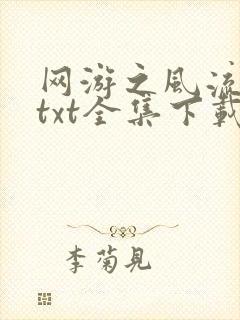 网游之风流
txt全集下载
李菊見